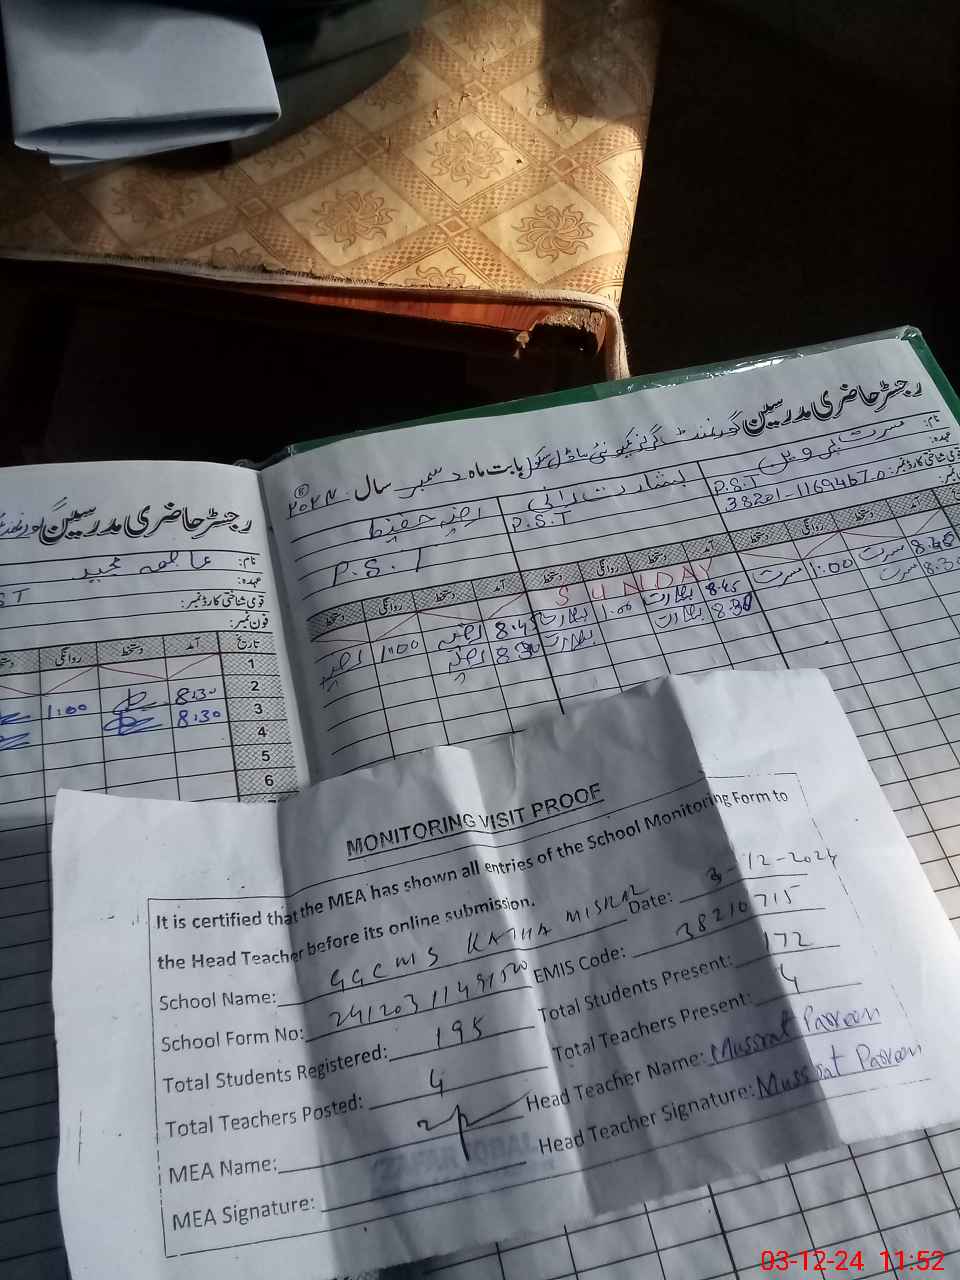 رجسٹر حاضری مدرسین
گورنمنٹ گرلز کمیونٹی ماڈل سکول بابت ماہ دسمبر سال ۲۰۲۴
نام: مسرت پروین
عہدہ: P.S.T
قومی شناختی کارڈ نمبر: 38201-1169467-0
بشارت
P.S.T
رضیہ حفیظ
P.S.T
آمد دستخط روانگی دستخط
آمد دستخط روانگی دستخط
آمد دستخط روانگی دستخط
SUNDAY
8.45 مسرت 1:00 مسرت
8.45 بشارت 1:00 بشارت
8.45 رضیہ 1:00 رضیہ
8.30 مسرت
8.30 بشارت بشارت
8.30 رضیہ
رجسٹر حاضری مدرسین
نام: عاصمہ مجید
عہدہ: ST
قومی شناختی کارڈ نمبر:
فون نمبر:
تاریخ آمد دستخط روانگی دستخط
1
2 8:30 1:00
3 8:30
4
5
6
MONITORING VISIT PROOF
It is certified that the MEA has shown all entries of the School Monitoring Form to
the Head Teacher before its online submission. Date: 3-12-2024
School Name: GGCMS KATHA MISRAL EMIS Code: 38210715
School Form No: Total Students Present: 172
Total Students Registered: 195 Total Teachers Present: 4
Total Teachers Posted: 4 Head Teacher Name: Mussrat Parveen
MEA Name: Head Teacher Signature: Mussrat Parveen
MEA Signature:
03-12-24 11:52